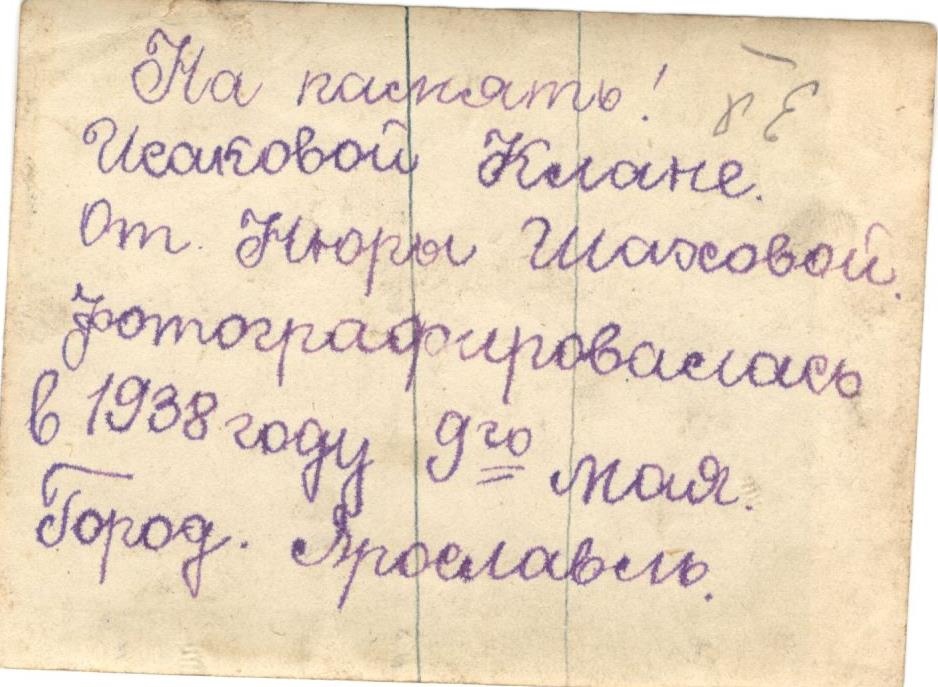 На память!
Исаковой Клане.
От. Нюры Шаховой.
Фотографировалась
в 1938 году 9го мая.
Город. Ярославль.